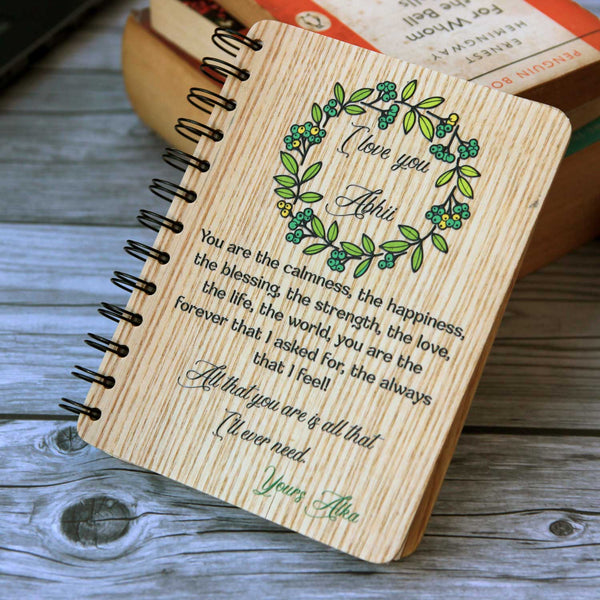 I love you
Abhii
You are the calmness, the happiness,
the blessing, the strength, the love,
the life, the world, you are the
forever that I asked for, the always
that I feel!
All that you are is all that
I'll ever need.
Yours Alka
For Whom
the Bell
ERNEST
HEMINGWAY
PENGUIN BO